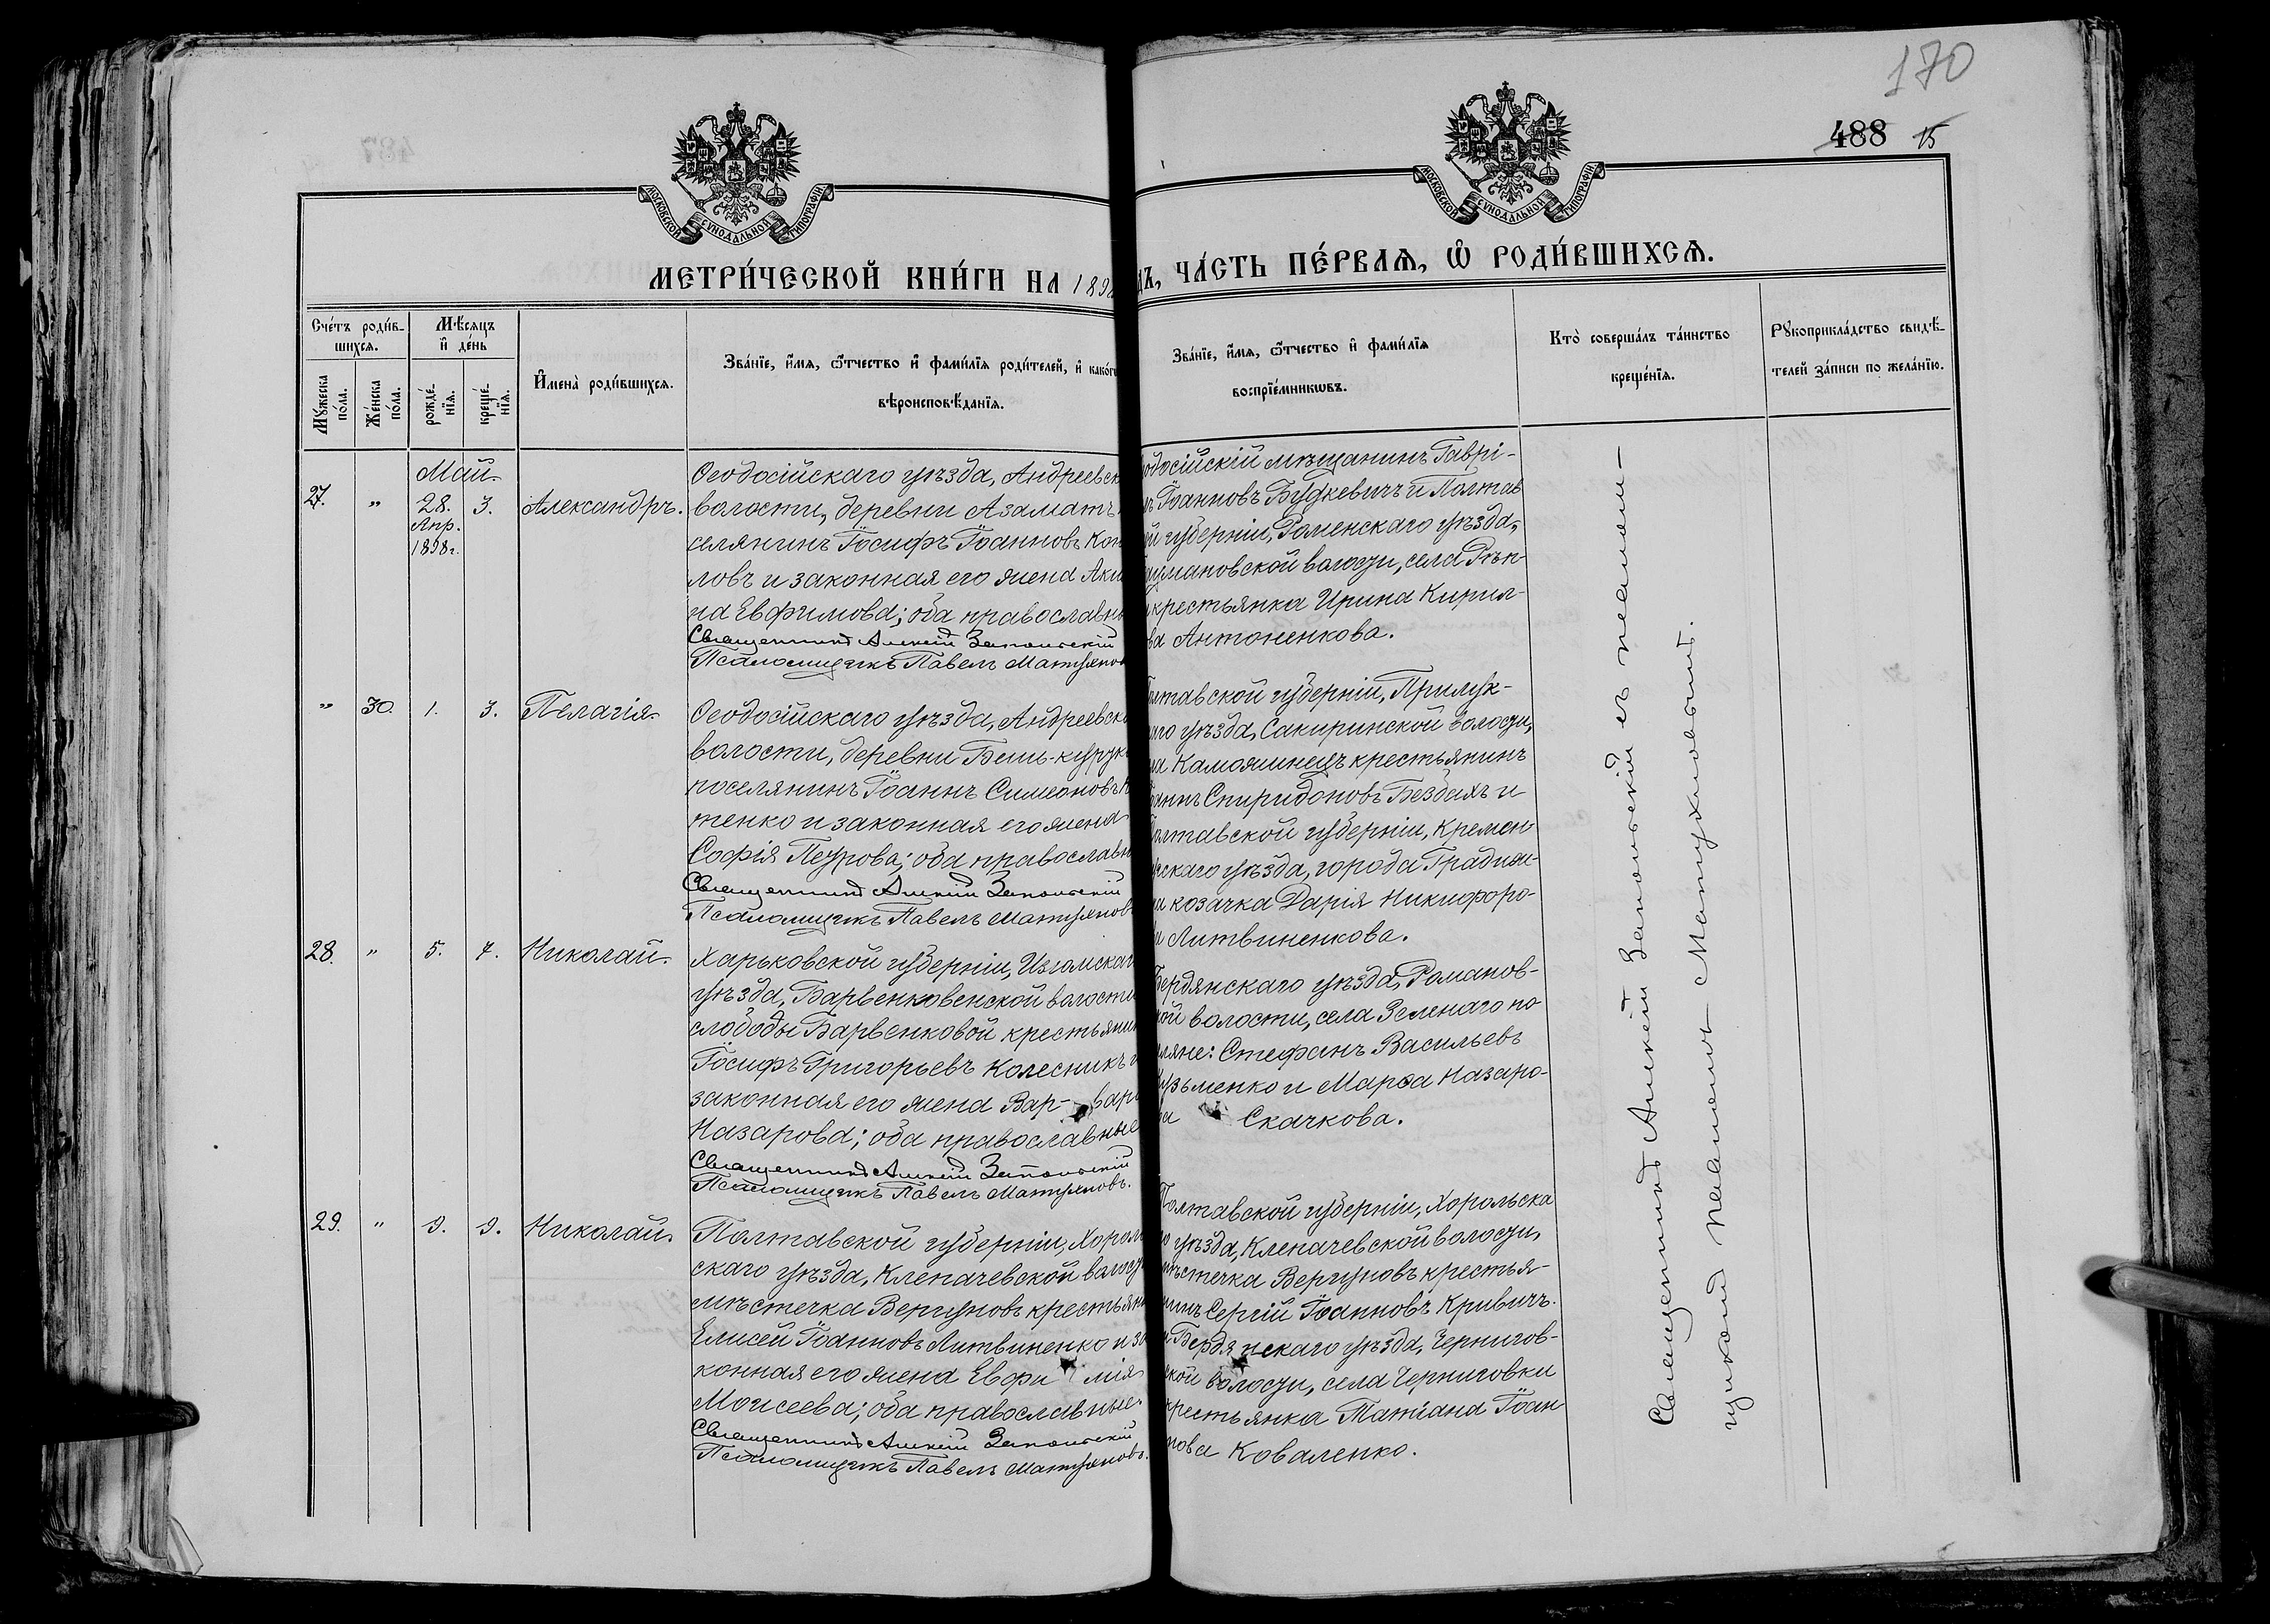 170
488 15
МОСКОВСКОЙ СѴНОДАЛЬНОЙ ТИПОГРАФІИ
МОСКОВСКОЙ СѴНОДАЛЬНОЙ ТИПОГРАФІИ
МЕТРИ́ЧЕСКОЙ КНИ́ГИ НА 189
ДЪ, ЧА́СТЬ ПЕ́РВАѦ, Ѽ РОДИ́ВШИХСѦ.
Сче́тъ роди́в-
шихсѧ.
Мꙋжеска
по́ла.
Же́нска
по́ла.
Мѣ́сѧцъ
и҆ де́нь
рожде́-
нїѧ.
креще́-
нїѧ.
И҆мена̀ роди́вшихсѧ.
Зва́нїе, и҆́мѧ, ѻ҆́тчество и҆ фами́лїѧ роди́телей, и҆ како́гѡ
вѣроисповѣ́данїѧ.
Зва́нїе, и҆́мѧ, ѻ҆́тчество и҆ фами́лїѧ
воспрїе́мникѡвъ.
Кто̀ соверша́лъ та́инство
креще́нїѧ.
Рꙋкоприкла́дство свидѣ́-
телей за́писи по жела́нїю.
Май.
27. „ 28. 3. Александръ.
Апр.
1898 г.
Ѳеодосійскаго уѣзда, Андреевск
волости, деревни Азаматъ
селянинъ Іосифъ Іоанновъ Кон
ловъ и законная его жена Аки
на Евфимова; оба православны
Священникъ Алексій Запольскій
Псаломщикъ Павелъ Матухнов
одосійскій мѣщанинъ Гаврі-
лъ Іоанновъ Будкевичъ и Полтав
й губерніи, Роменскаго уѣзда,
умановской волости, села Рѣп-
крестьянка Ирина Кирил-
ва Антоненкова.
„ 30. 1. 3. Пелагія.
Ѳеодосійскаго уѣзда, Андреевск
волости, деревни Бешь-курук
поселянинъ Іоаннъ Симеоновъ
тенко и законная его жена
Софія Петрова; оба православн
Священникъ Алексій Запольскій
Псаломщикъ Павелъ Матухнов
лтавской губерніи, Прилук-
аго уѣзда, Сакиринской волости,
ла Камояшнецъ крестьянинъ
оаннъ Спиридоновъ Бездахъ и
олтавской губерніи, Кремен-
угскаго уѣзда, города Градиж-
ка козачка Дарія Никифоро-
а Литвиненкова.
28. „ 5. 7. Николай.
Харьковской губерніи, Изюмскаг
уѣзда, Барвенковенской волости
слободы Барвенковой крестьянин
Іосифъ Григорьевъ Колесникъ и
законная его жена Вар- вара
Назарова; оба православные
Священникъ Алексій Запольскій
Псаломщикъ Павелъ Матухновъ.
Бердянскаго уѣзда, Романов-
кой волости, села Зеленаго по-
еляне: Стефанъ Васильевъ
Кузьменко и Марѳа Назаро-
ва Скачкова.
29. „ 9. 9. Николай.
Полтавской губерніи, Хороль
скаго уѣзда, Клепачевской волост
мѣстечка Вергуновъ крестьяни
Елисей Іоанновъ Литвиненко и за
конная его жена Евфи мія
Моисеева; оба православные.
Священникъ Алексій Запольскій
Псаломщикъ Павелъ Матухновъ.
Полтавской губерніи, Хорольска
го уѣзда, Клепачевской волости,
мѣстечка Вергуновъ крестья-
нинъ Сергій Іоанновъ Кривичъ.
и Бердянскаго уѣзда, Чернигов-
ской волости, села Черниговки
крестьянка Татіана Іоан-
нова Коваленко.
Священникъ Алексій Запольскій съ псалом-
щикомъ Павломъ Матухновымъ.